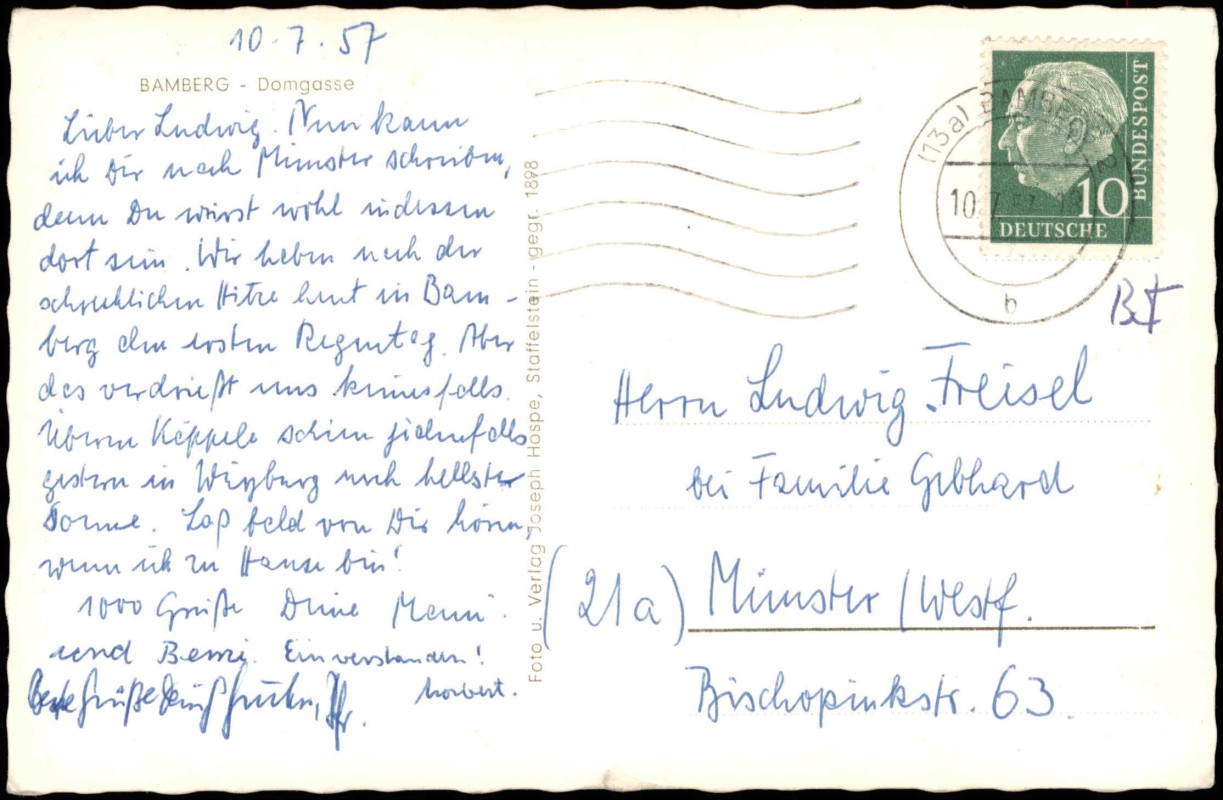 10.7.57
BAMBERG - Domgasse
Lieber Ludwig. Nun kann
ich Dir nach Münster schreiben,
denn Du wirst wohl indessen
dort sein. Wir haben nach der
schrecklichen Hitze heut in Bam-
berg den ersten Regentag. Aber
das verdrießt uns keinesfalls.
Überm Käppele schien jedenfalls
gestern in Würzburg noch hellster
Sonne. Laß bald von Dir hören,
wenn ich zu Hause bin!
1000 Grüße Deine Mami.
und Berni. Einverstanden!
Norbert.
Beste Grüße
Foto u. Verlag Joseph Hospe, Staffelstein - gegr. 1898
(13a) BAMBERG 2
10.7.57.
b
DEUTSCHE
BUNDESPOST
10
Herrn Ludwig Freisel
bei Familie Gebhard
(21a) Münster/Westf.
Bischopinkstr. 63.